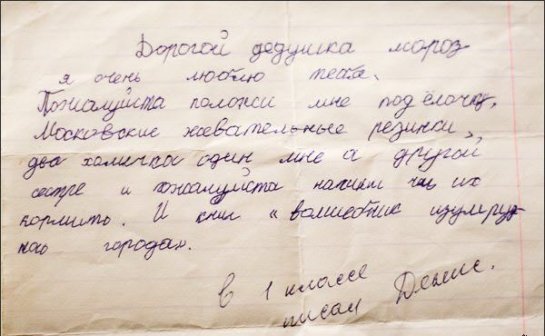 Дорогой дедушка мороз
я очень люблю тебя.
Пожалуйста положи мне под ёлочку,
Московские жевательные резинки,
два хомячка один мне а другой
сестре и пожалуйста напиши чем их
кормить. И книгу "волшебник изумруд
ного города".
В 1 классе
писал Денис.